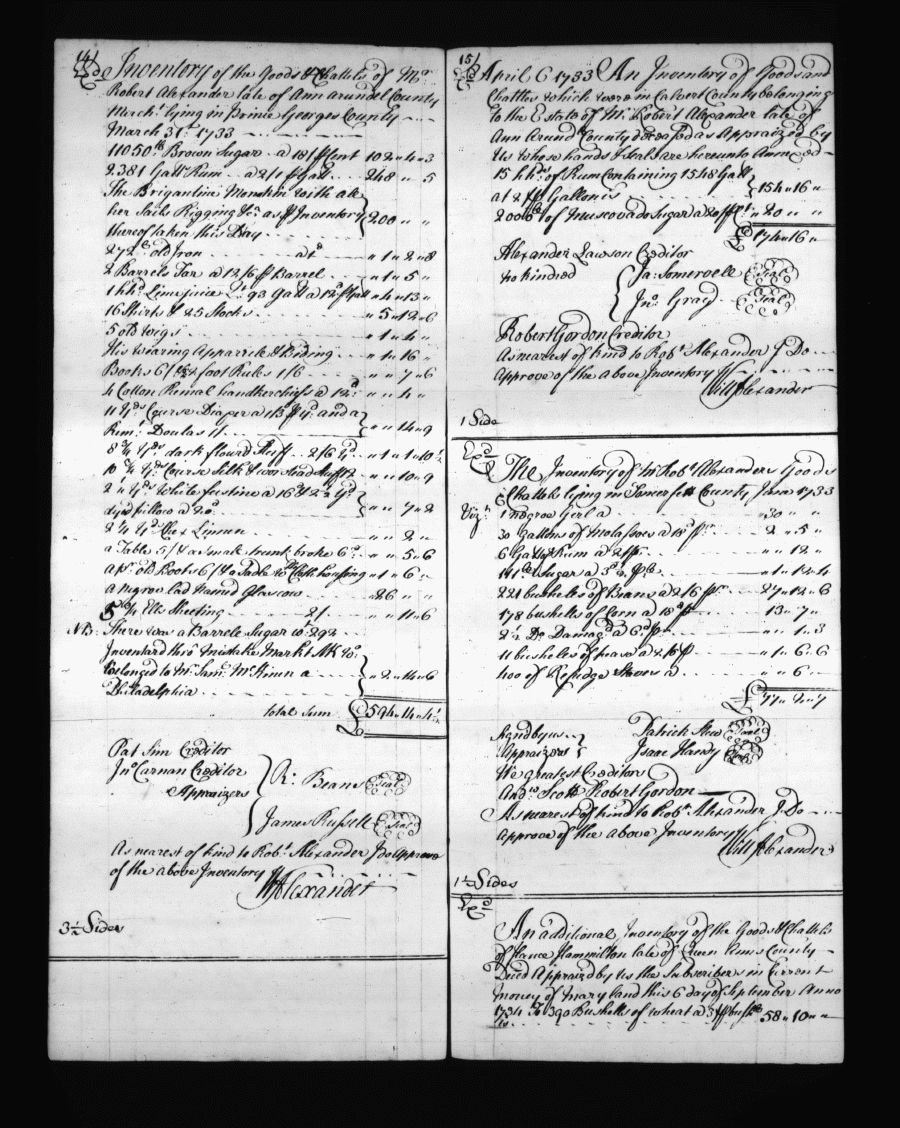 14
Exd Inventory of the Goods & Chattels of Mr
Robert Alexander late of Ann Arundel County
March.t lying in Prince Georges County
March 31st 1733
11050 lb Brown Sugar a 18/ ⅌ Cent 102 „ 4 „ 3
2381 Gall Rum a 2/1 ⅌ Gall 248 „ „ 5
The Brigantine Monkin with all
her Sails Rigging &ca as ⅌ Inventory 200 „ „
thereof taken this Day
272 lb old Iron a 1d „ 1 „ 2 „ 8
2 Barrels Tar a 12/6 ⅌ Barrel „ 1 „ 5 „
1 hhd Lime juice Qt 93 Gall a 12d ⅌ Gall „ 4 „ 13 „
16 Shirts & 25 Stocks „ 5 „ 12 „ 6
5 old wigs „ 1 „ 4 „
His wearing Apparrill & Biding „ 1 „ 16 „
Books 6/ & 2 foot Rules 1/6 „ „ 7 „ 6
4 Cotton Romal handkerchiefs a 12d „ „ 4 „
11 yds Course Diaper a 1/3 ⅌ yd and a
Remt Doulas 1/ „ „ 14 „ 9
8 3/4 yds dark flourd Stuff 2/6 yd „ 1 „ 1 „ 10 1/2
10 3/4 yds Course Silk & worstead Stuff 12 „ „ 10 „ 9
2 „ yds White fustine a 16d & 2 1/2 yd
dyed pillow a 20d „ „ 7 „ 2
2 1/4 yd Check Linnen „ „ 2 „
a Table 5/ & a small trunk broke 6d „ „ 5 „ 6
a pr old Boots 6/ & Sadle wth Cloth housing „ 1 „ 6 „
a Negroe lad Named Glascow „ 26 „ „
5 3/4 Ells Sheeting 2/ „ „ 11 „ 6
NB. There was a Barrele Sugar wt 292
Inventard thro mistake Markt MK wch
belonged to Mr Saml McKinen a „ 2 „ 14 „ 6
Philadelphia
total sum £594 „ 14 „ 4 1/2
Pat Sim Creditor
Jno Carnan Creditor
Appraizers
R: Beans Seal
James Russell Seal
As nearest of kind to Robt Alexander I do approve
of the above Inventory
W Alexander
3 1/2 Sides
15
Exd April 6 1733 An Inventory of Goods and
Chattles which were in Calvert County belonging
to the Estate of Mr Robert Alexander late of
Ann Arundl County deceased as Appraized by
Us whose hands & Seals are hereunto Annexed
15 hhds of Rum Containing 1548 Gall
at 2 ⅌ Gallon is 154 „ 16 „
2000 lb of Muscovado Sugar a 20 ⅌ Ct „ 20 „ „
£174 „ 16 „
Alexander Lawson Creditor
no kindred
Ja: Somervelle Seal
Jno Gray Seal
Robert Gordon Creditor
As nearest of kind to Robt Alexander I Do
Approve of the above Inventory
Will Alexander
1 Side
Exd
The Inventory of Mr Robt Alexanders Goods
& Chattels lying in Somersett County June 1733
Vizt 1 Negroe Gerl a 30 „ „
30 Gallons of Molasses a 18d ⅌ 2 „ 5 „
6 Galls of Rum a 2 ⅌ „ „ 12 „
lb Sugar a 3d „ 1 „ 12 „ 4
221 bushells of Beans a 2/6 ⅌ 27 „ 12 „ 6
178 bushells of Corn a 18d ⅌ 13 „ 7 „
2 1/2 Do Damagd a 6d ⅌ „ „ 1 „ 3
11 bushells of pease a 2/6 ⅌ „ 1 „ 6 „ 6
400 of Staves a „ „ 6 „
£77 „ 2 „ 7
Signd by us
Appraizers
Patrick Stew Seal
Isaac Handy Seal
We greatest Creditors
Andw Scott Robert Gordon
As nearest of kind to Robt Alexander I Do
approve of the above Inventory
Will Alexander
1 1/2 Sides
Exd
An additional Inventory of the Goods & Chattels
of Hance Hammilton late of Queen Anns County
Deced Appraizd by us the Subscribers in Current
money of Maryland this 6 day of September Anno
1734 To 390 Bushells of wheat a 3 ⅌ bushll 58 „ 10 „ „
is